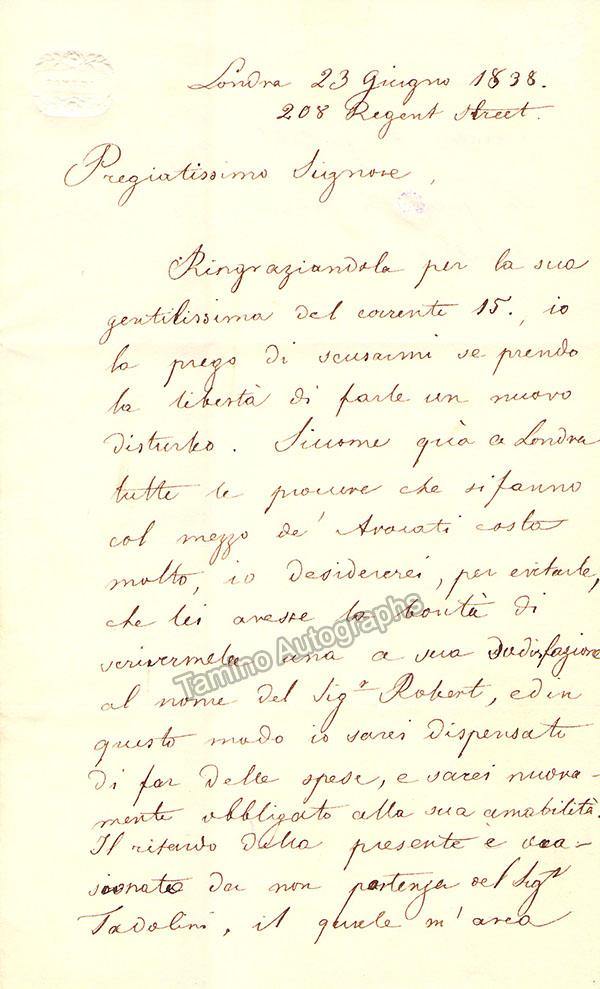 Londra 23 Giugno 1838.
208 Regent Street.
Pregiatissimo Signore,
Ringraziandola per la sua
gentilissima del corrente 15., io
la prego di scusarmi se prendo
la libertà di farle un nuovo
disturbo. Siccome quà a Londra
tutte le procure che si fanno
col mezzo de' Avocati costa
molto, io desidererei, per evitarle,
che lei avesse la bontà di
scrivermela una a sua sodisfazione
al nome del Sigr Robert, ed in
questo modo io sarei dispensato
di far delle spese, e sarei nuova-
mente obbligato alla sua amabilità.
Il ritardo della presente è occa-
sionato da non partenza del Sigr
Tadolini, il quale m'avea
Tamino Autographs